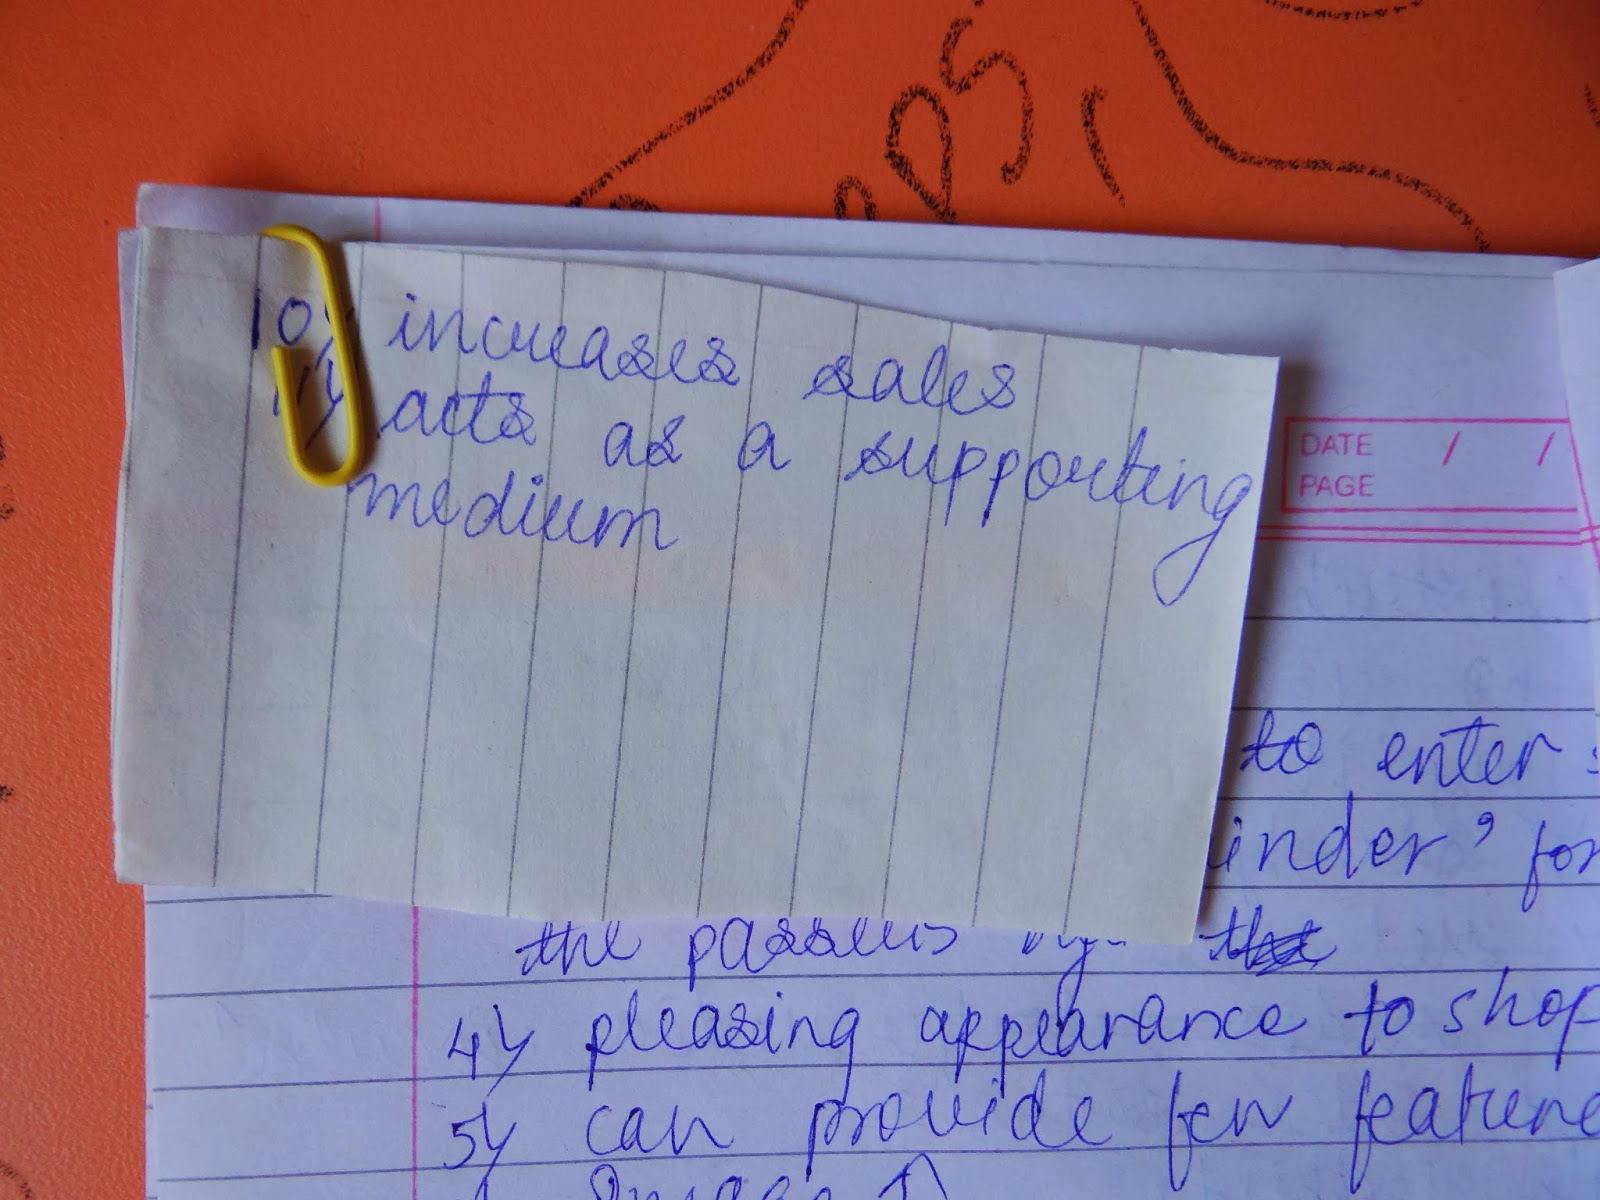 10) increases sales
11) acts as a supporting
medium
DATE / /
PAGE
to enter
inder' for
the passers
4) pleasing appearance to shop
5) can provide few feature